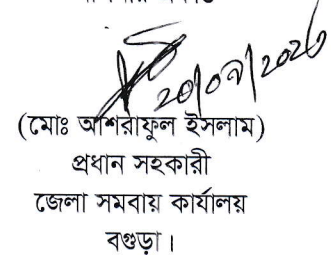 (মোঃ আশরাফুল ইসলাম)
প্রধান সহকারী
জেলা সমবায় কার্যালয়
বগুড়া।